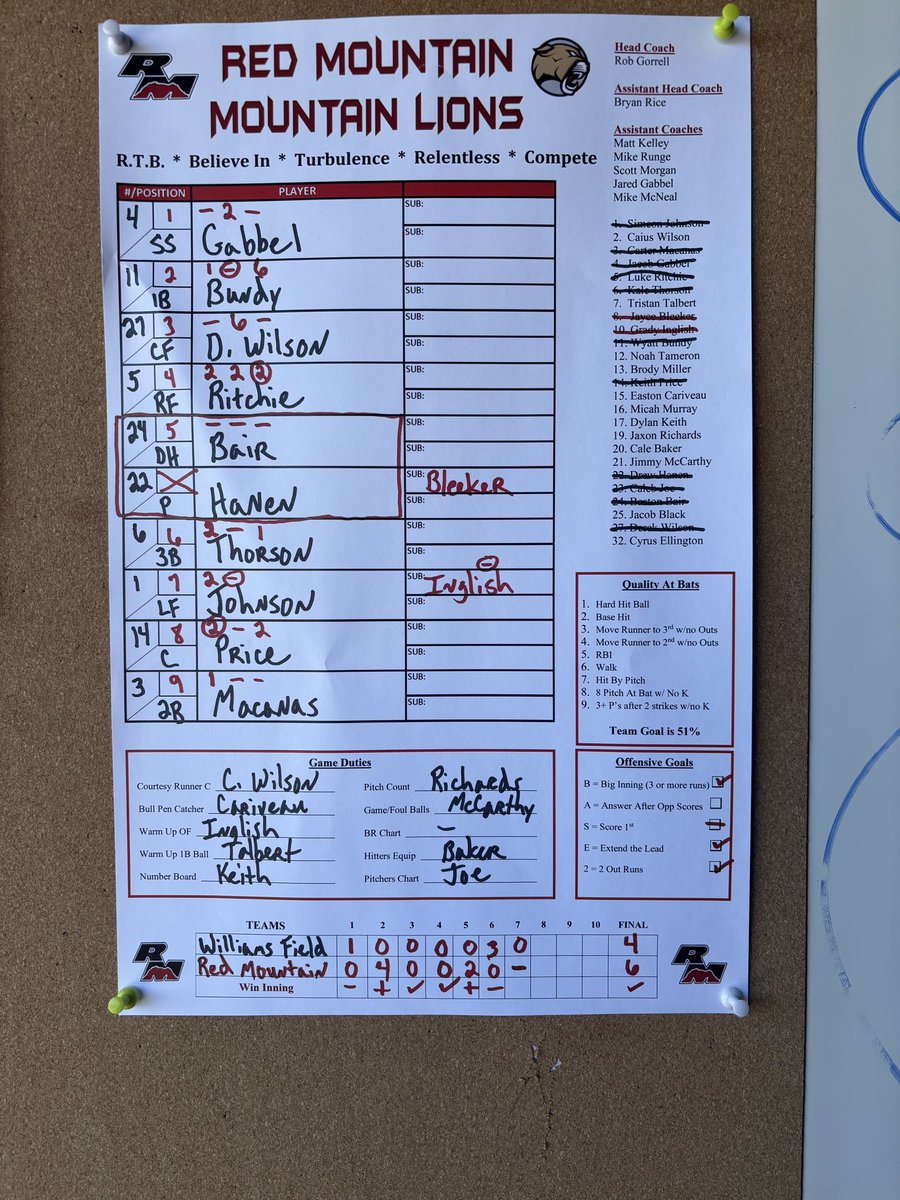 RM
RED MOUNTAIN
MOUNTAIN LIONS
R.T.B. * Believe In * Turbulence * Relentless * Compete
Head Coach
Rob Gorrell
Assistant Head Coach
Bryan Rice
Assistant Coaches
Matt Kelley
Mike Runge
Scott Morgan
Jared Gabbel
Mike McNeal
1. Simeon Johnson
2. Caius Wilson
3. Carter Macanas
4. Jacob Gabbel
5. Luke Ritchie
6. Kale Thorson
7. Tristan Talbert
8. Jayce Bleeker
10. Grady Inglish
11. Wyatt Bundy
12. Noah Tameron
13. Brody Miller
14. Keith Price
15. Easton Cariveau
16. Micah Murray
17. Dylan Keith
19. Jaxon Richards
20. Cale Baker
21. Jimmy McCarthy
22. Drew Hanen
23. Caleb Joe
24. Boston Bair
25. Jacob Black
27. Derek Wilson
32. Cyrus Ellington
#/POSITION PLAYER
4 1 - 2 - SUB:
SS Gabbel SUB:
11 2 1 - 6 SUB:
1B Bundy SUB:
27 3 - 6 - SUB:
CF D. Wilson SUB:
5 4 2 2 2 SUB:
RF Ritchie SUB:
24 5 - - - SUB:
DH Bair SUB:
22 SUB: Bleeker
P Hanen SUB:
6 6 2 - 1 SUB:
3B Thorson SUB:
1 7 2 - SUB: Inglish -
LF Johnson SUB:
14 8 2 - 2 SUB:
C Price SUB:
3 9 1 - - SUB:
2B Macanas SUB:
Quality At Bats
1. Hard Hit Ball
2. Base Hit
3. Move Runner to 3rd w/no Outs
4. Move Runner to 2nd w/no Outs
5. RBI
6. Walk
7. Hit By Pitch
8. 8 Pitch At Bat w/ No K
9. 3+ P's after 2 strikes w/no K
Team Goal is 51%
Game Duties
Courtesy Runner C C. Wilson Pitch Count Richards
Bull Pen Catcher Cariveau Game/Foul Balls McCarthy
Warm Up OF Inglish BR Chart -
Warm Up 1B Ball Talbert Hitters Equip Baker
Number Board Keith Pitchers Chart Joe
Offensive Goals
B = Big Inning (3 or more runs) ✓
A = Answer After Opp Scores
S = Score 1st -
E = Extend the Lead ✓
2 = 2 Out Runs ✓
TEAMS 1 2 3 4 5 6 7 8 9 10 FINAL
Williams Field 1 0 0 0 0 3 0 4
Red Mountain 0 4 0 0 2 0 - 6
Win Inning - + ✓ ✓ + - ✓
RM
RM